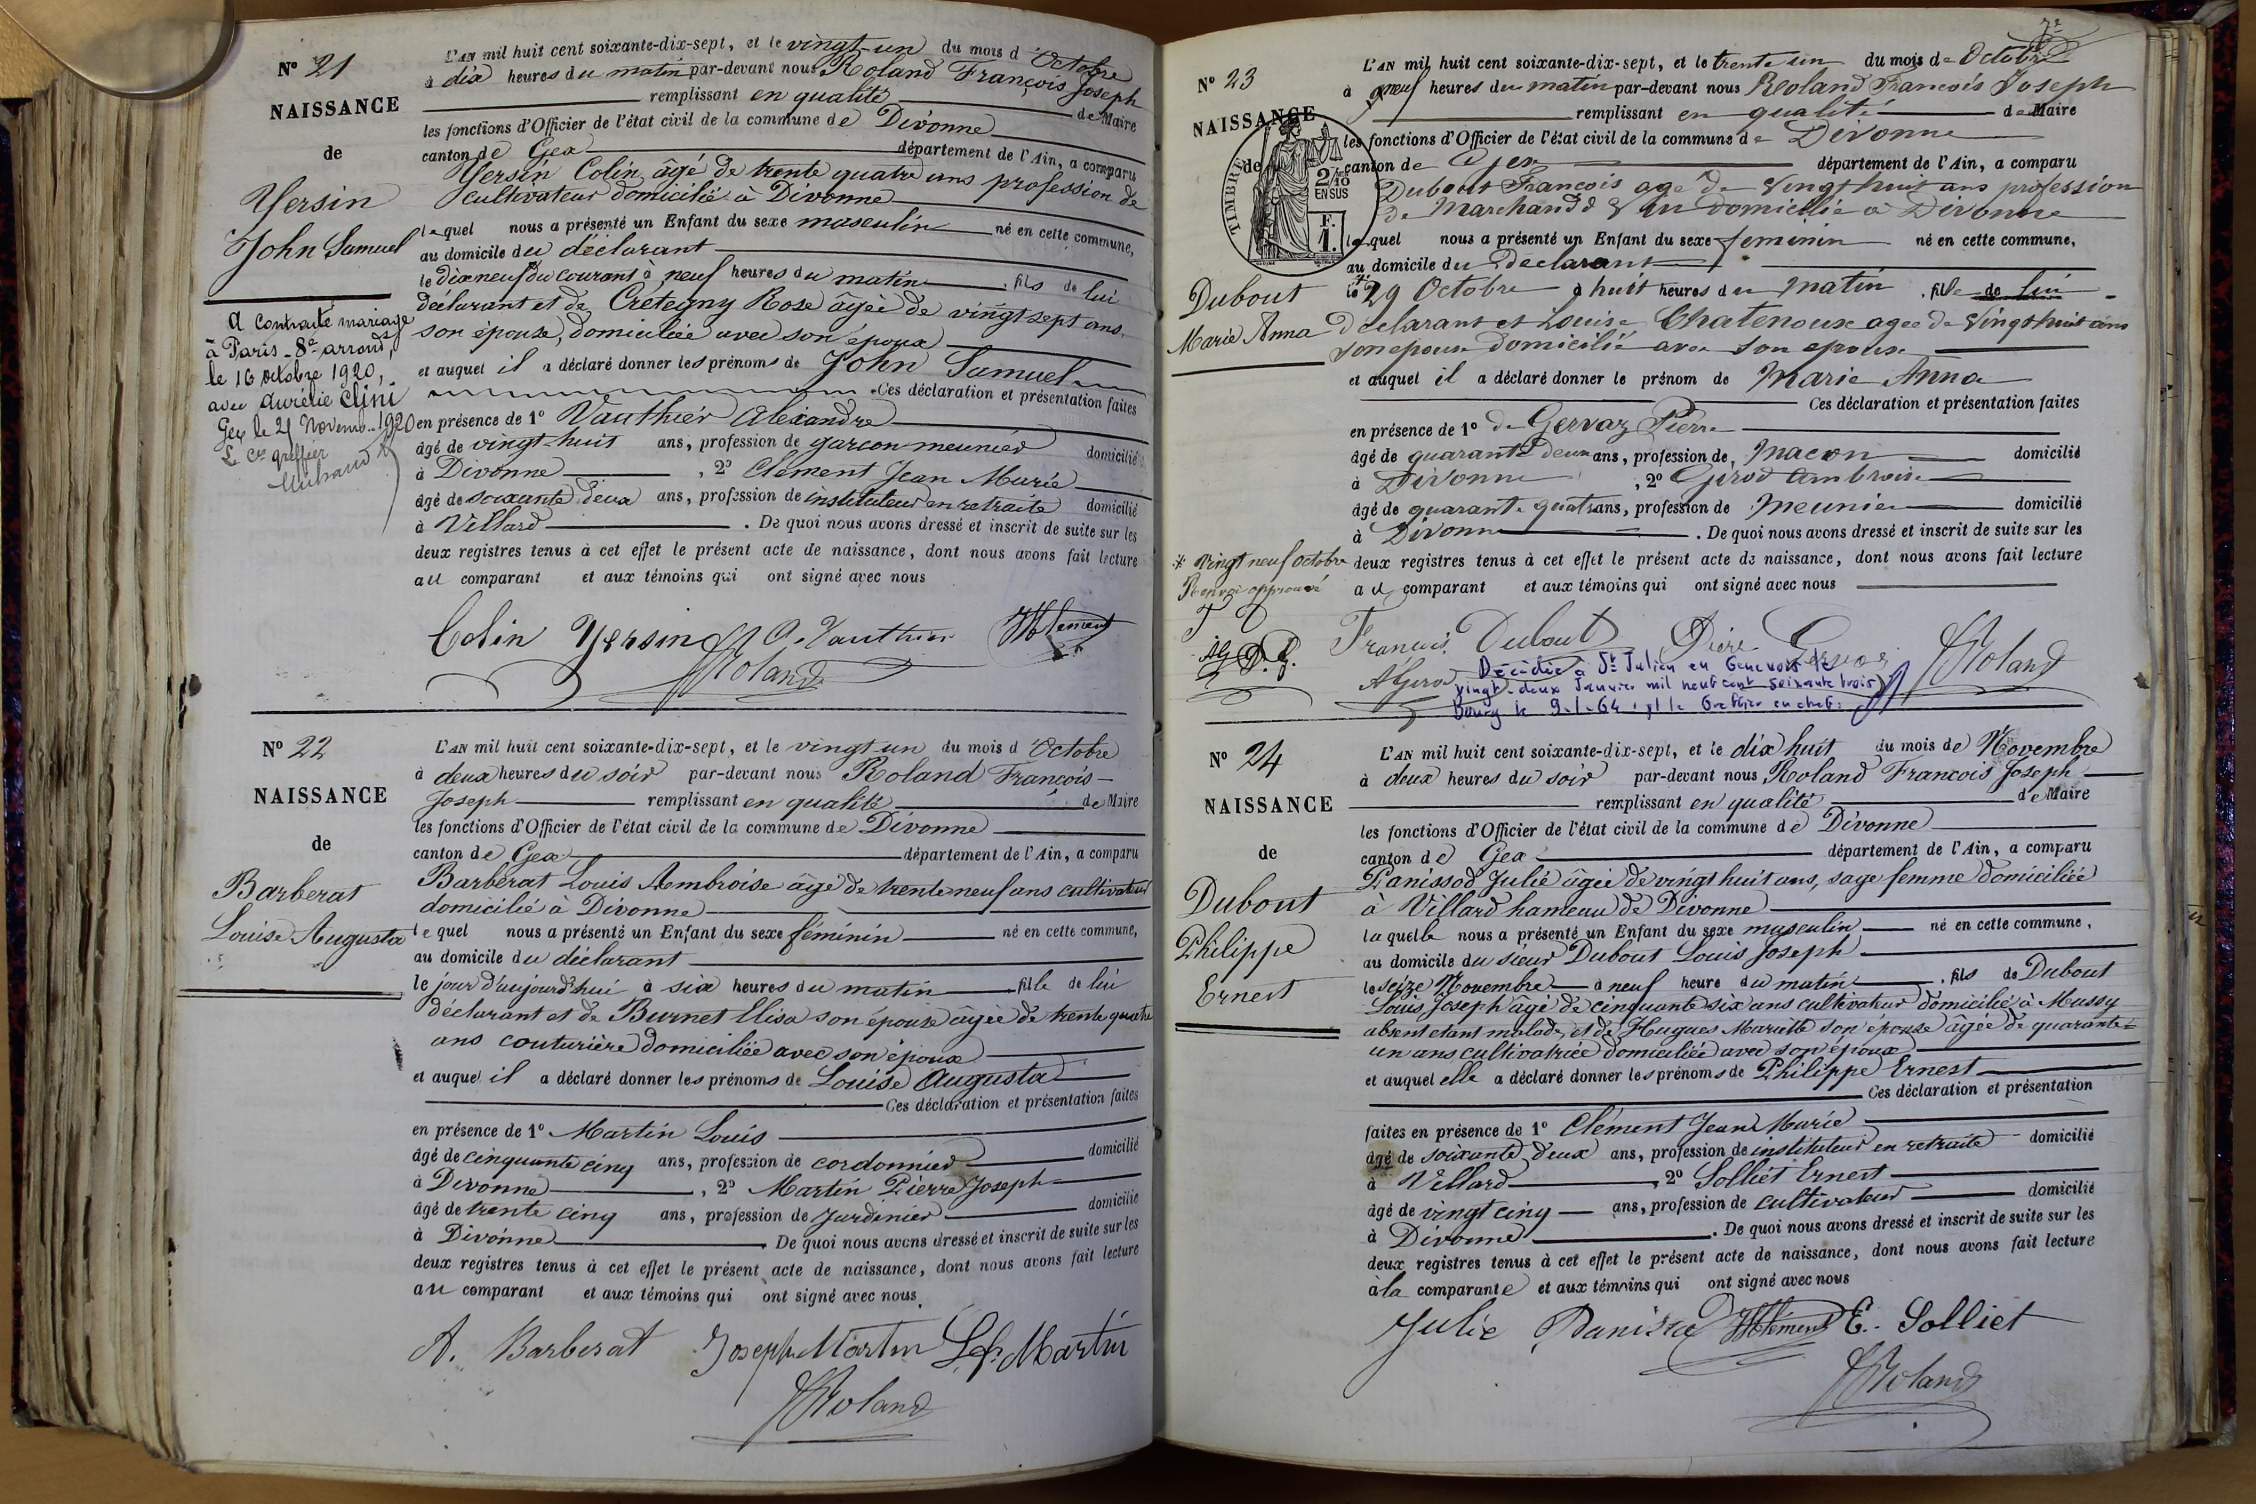 N° 21
NAISSANCE
de
Yersin
John Samuel
a contracté mariage
à Paris - 8e arrondt,
le 16 octobre 1920,
avec Aurélie Clini
Gex le 21 Novemb. 1920
Le cis greffier
L'AN mil huit cent soixante-dix-sept, et le vingt-un du mois d'Octobre
à dix heures du matin par-devant nous Roland François Joseph
remplissant en qualité de Maire
les fonctions d'Officier de l'état civil de la commune de Divonne
canton de Gex département de l'Ain, a comparu
Yersin Colin, âgé de trente quatre ans profession de
cultivateur domicilié à Divonne
lequel nous a présenté un Enfant du sexe masculin né en cette commune,
au domicile du déclarant
le Dix neuf du courant à neuf heures du matin, fils de lui
déclarant et de Cretegny Rose âgée de vingt sept ans,
son épouse, domiciliée avec son époux
et auquel il a déclaré donner les prénoms de John Samuel
Ces déclaration et présentation faites
en présence de 1° Vauthier Alexandre
âgé de vingt-huit ans, profession de garçon meunier domicilié
à Divonne, 2° Clément Jean Marie
âgé de soixante deux ans, profession de instituteur en retraite domicilié
à Villard. De quoi nous avons dressé et inscrit de suite sur les
deux registres tenus à cet effet le présent acte de naissance, dont nous avons fait lecture
au comparant et aux témoins qui ont signé avec nous
Colin Yersin A. Vauthier JM Clement
Roland
N° 22
NAISSANCE
de
Barberat
Louise Augusta
L'AN mil huit cent soixante-dix-sept, et le vingt-un du mois d'Octobre
à deux heures du soir par-devant nous Roland François-
Joseph remplissant en qualité de Maire
les fonctions d'Officier de l'état civil de la commune de Divonne
canton de Gex département de l'Ain, a comparu
Barberat Louis Ambroise âgé de trente neuf ans cultivateur
domicilié à Divonne
lequel nous a présenté un Enfant du sexe féminin né en cette commune,
au domicile du déclarant
le jour d'aujourd'hui à six heures du matin fille de lui
déclarant et de Burnet Elisa son épouse âgée de trente quatre
ans couturière domiciliée avec son époux
et auquel il a déclaré donner les prénoms de Louise Augusta
Ces déclaration et présentation faites
en présence de 1° Martin Louis
âgé de cinquante cinq ans, profession de cordonnier domicilié
à Divonne, 2° Martin Pierre Joseph
âgé de trente cinq ans, profession de Jardinier domicilié
à Divonne. De quoi nous avons dressé et inscrit de suite sur les
deux registres tenus à cet effet le présent acte de naissance, dont nous avons fait lecture
au comparant et aux témoins qui ont signé avec nous.
A. Barberat Joseph Martin Ls. Martin
Roland
N° 23
NAISSANCE
de
TIMBRE
2/10
EN SUS
F.
1.
Dubout
Marie Anna
* Vingt neuf octobre
Renvoi approuvé
AG D. F.
L'AN mil huit cent soixante-dix-sept, et le trente un du mois de Octobre
à neuf heures du matin par-devant nous Roland François Joseph
remplissant en qualité de Maire
les fonctions d'Officier de l'état civil de la commune de Divonne
canton de Gex département de l'Ain, a comparu
Dubout François age de Vingt huit ans profession
de Marchand d Vin domicilié à Divonne
lequel nous a présenté un Enfant du sexe feminin né en cette commune,
au domicile du Déclarant
le 29 Octobre à huit heures du matin, fille de lui
Déclarant et Louise Chatenoux agee de Vingt huit ans
son epouse domicilié avec son epoux
et auquel il a déclaré donner le prénom de Marie Anna
Ces déclaration et présentation faites
en présence de 1° de Gervaz Pierre
âgé de quarante deux ans, profession de Macon domicilié
à Divonne, 2° Girod Ambroise
âgé de quarante quatre ans, profession de Meunier domicilié
à Divonne. De quoi nous avons dressé et inscrit de suite sur les
deux registres tenus à cet effet le présent acte de naissance, dont nous avons fait lecture
au comparant et aux témoins qui ont signé avec nous
François Dubout Piere Gervaz
A Girod Roland
Décédée à St Julien en Genevois le
vingt-deux Janvier mil neuf cent soixante trois
Bourg le 9-1-64 pt le Greffier en chef:
N° 24
NAISSANCE
de
Dubout
Philippe
Ernest
L'AN mil huit cent soixante-dix-sept, et le dix huit du mois de Novembre
à deux heures du soir par-devant nous Roland François Joseph
remplissant en qualité de Maire
les fonctions d'Officier de l'état civil de la commune de Divonne
canton de Gex département de l'Ain, a comparu
Panissod Julie âgée de vingt huit ans, sage femme domiciliée
à Villard hameau de Divonne
laquelle nous a présenté un Enfant du sexe masculin né en cette commune,
au domicile du sieur Dubout Louis Joseph
le seize Novembre à neuf heure du matin, fils de Dubout
Louis Joseph âgé de cinquante six ans cultivateur domicilié à Mussy
absent etant malade, et de Hugues Mariette son épouse âgée de quarante-
un ans cultivatrice domiciliée avec son époux
et auquel elle a déclaré donner les prénoms de Philippe Ernest
Ces déclaration et présentation
faites en présence de 1° Clément Jean Marie
âgé de soixante deux ans, profession de instituteur en retraite domicilié
à Villard, 2° Solliet Ernest
âgé de vingt cinq ans, profession de cultivateur domicilié
à Divonne. De quoi nous avons dressé et inscrit de suite sur les
deux registres tenus à cet effet le présent acte de naissance, dont nous avons fait lecture
à la comparante et aux témoins qui ont signé avec nous
Julie Panissod JM Clément E. Solliet
Roland